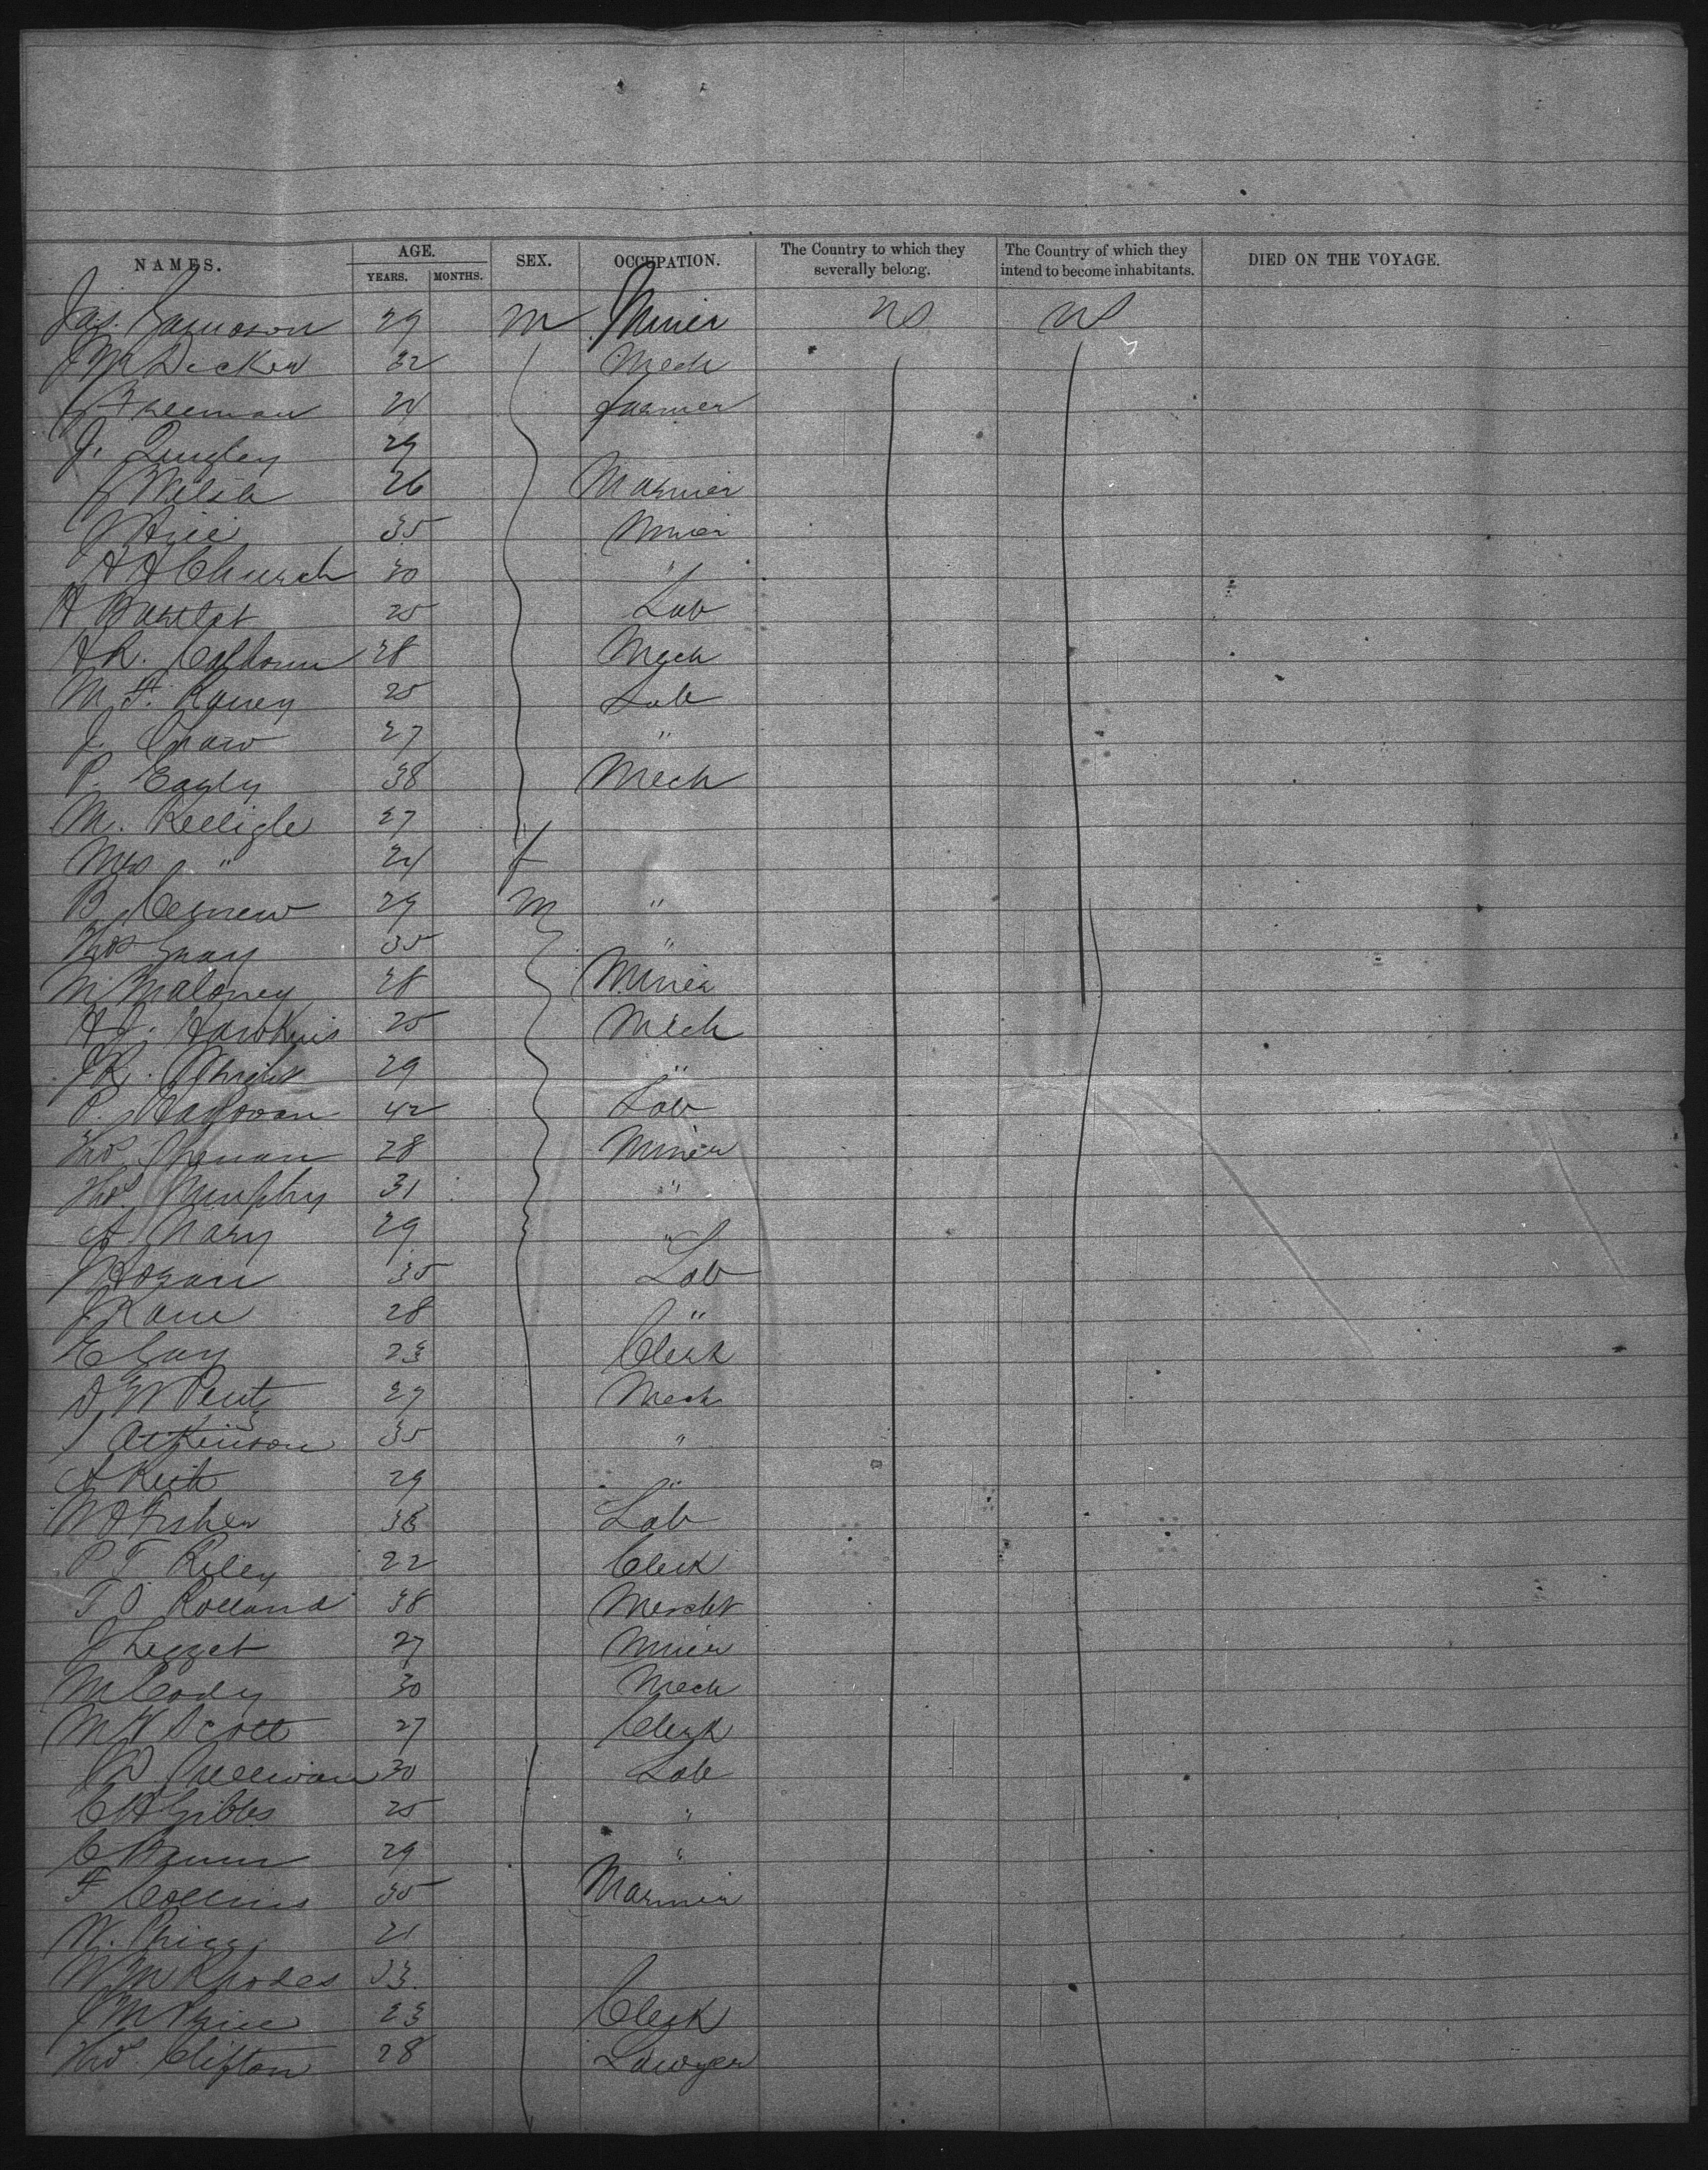 NAMES. AGE. YEARS. MONTHS. SEX. OCCUPATION. The Country to which they severally belong. The Country of which they intend to become inhabitants. DIED ON THE VOYAGE.
Jas. 29 m Miner US US
J M Decker 32 Mech
J Freeman 24 farmer
J. Quigley 29
J Welsh 26 Mariner
J Price 35 Miner
A A Church 30 "
H Bartlet 25 Lab
A R. Calhoun 28 Mech
M. F. Raney 25 Lab
J. Shaw 27 "
P. Eagly 38 Mech
M. Kelligle 27
Mrs " 24 f
B. 29 m "
Thos Gray 35 "
M Maloney 28 Miner
H J. Hawkins 25 Mech
J R. Wright 29 "
P. Hallovan 42 Lab
Thos 28 Miner
Thos. Murphy 31 "
A Nary 29 "
J Horan 35 Lab
J Kane 28 "
E Gay 23 Clerk
D W Pentz 27 Mech
J Atkinson 35 "
A Keith 29 "
W A Fisher 36 Lab
P T Riley 22 Clerk
T O Rolland 38 Mercht
J Legget 27 Miner
M Cody 30 Mech
M W Scott 27 Clerk
D Sullivan 30 Lab
C H Gibbs 25 "
C 29 "
F Collins 35 Mariner
W. 21
W M Rhodes 33
J M Price 23 Clerk
Thos. Clifton 28 Lawyer